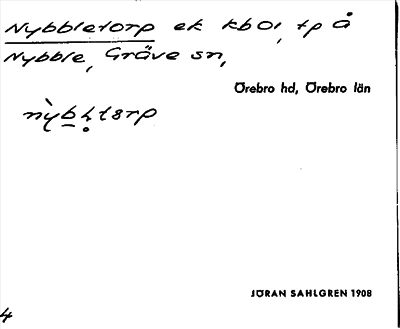 Nybbletorp ek kb Ol, tp å
Nybble, Gräve sn,
Örebro hd, Örebro län
JÖRAN SAHLGREN 1908
4